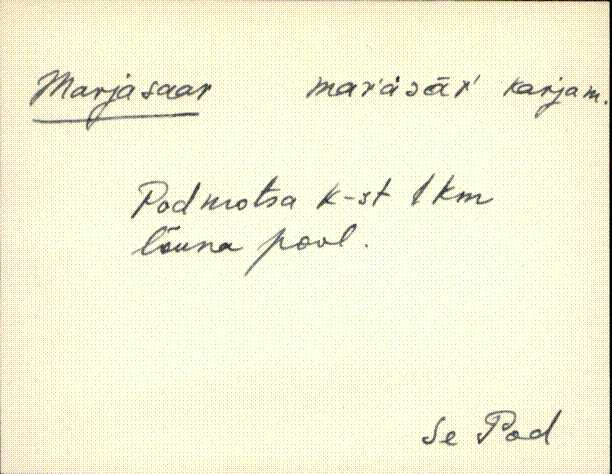 Marjasaar maŕásāŕ karjam.
Podmotsa k-st 1 km
lõuna pool.
Se Pod